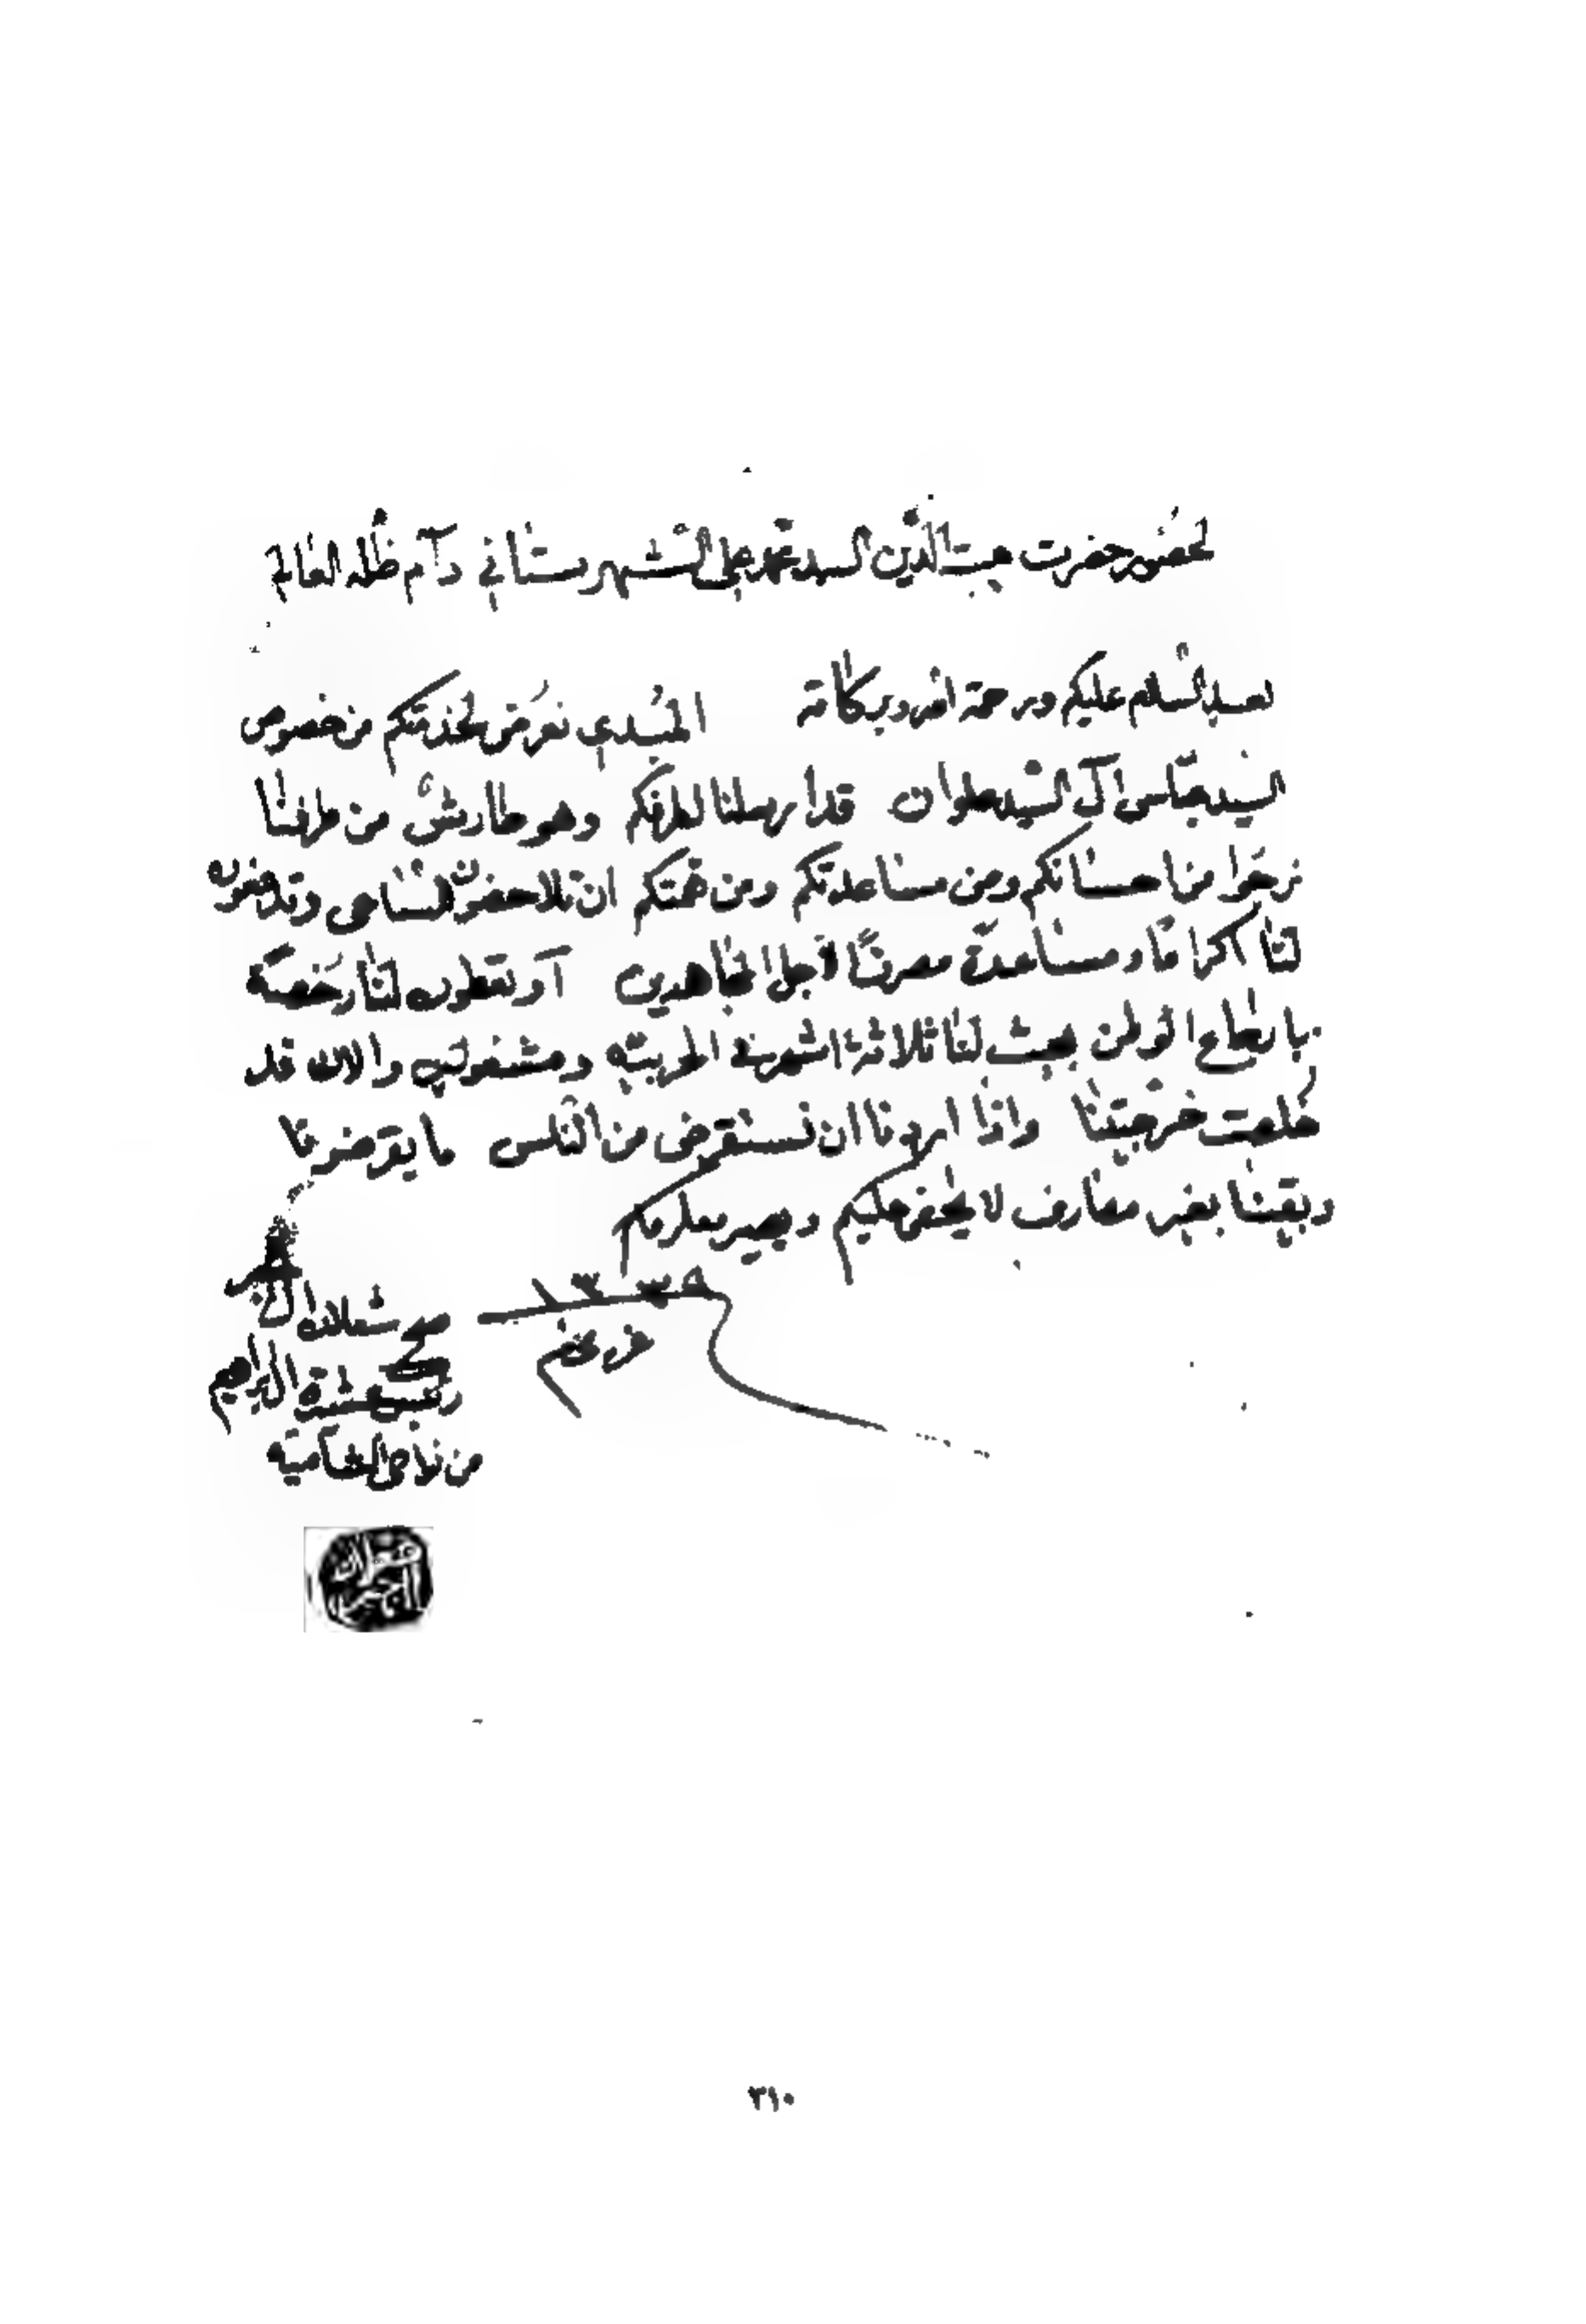 لحضور حضرت هبت الدين السيد محمد علي الشهرستاني دآم ظله العالي
بعد السلام عليكم ورحمة الله وبركاته المبدي نعرض لخدمتكم من خصوص
السيد عباس آل السيد علوان قد ارسلنا لطرفكم وهو طارش من طرفنا
نرجوا من احسانكم ومن مساعدتكم ومن همتكم ان تلاحضون
لنا اكراما ومساعدة مصرفاً لاجل المجاهدين آو تعطون لنا رخصة
بارجاع الوطن بحيث لنا ثلاثة اشهر في الحربيه ومشغولين والان قد
خلصت خرجيتنا واذا اردنا ان نستقرض من الناس ما يقرضونا
وبقينا بغير مصارف لا يخفى عليكم ويصير معلومكم
١٣٣٨
شعلان
رئيس عشيرة البراهيم
من نواحي الشاميه
٣١٠